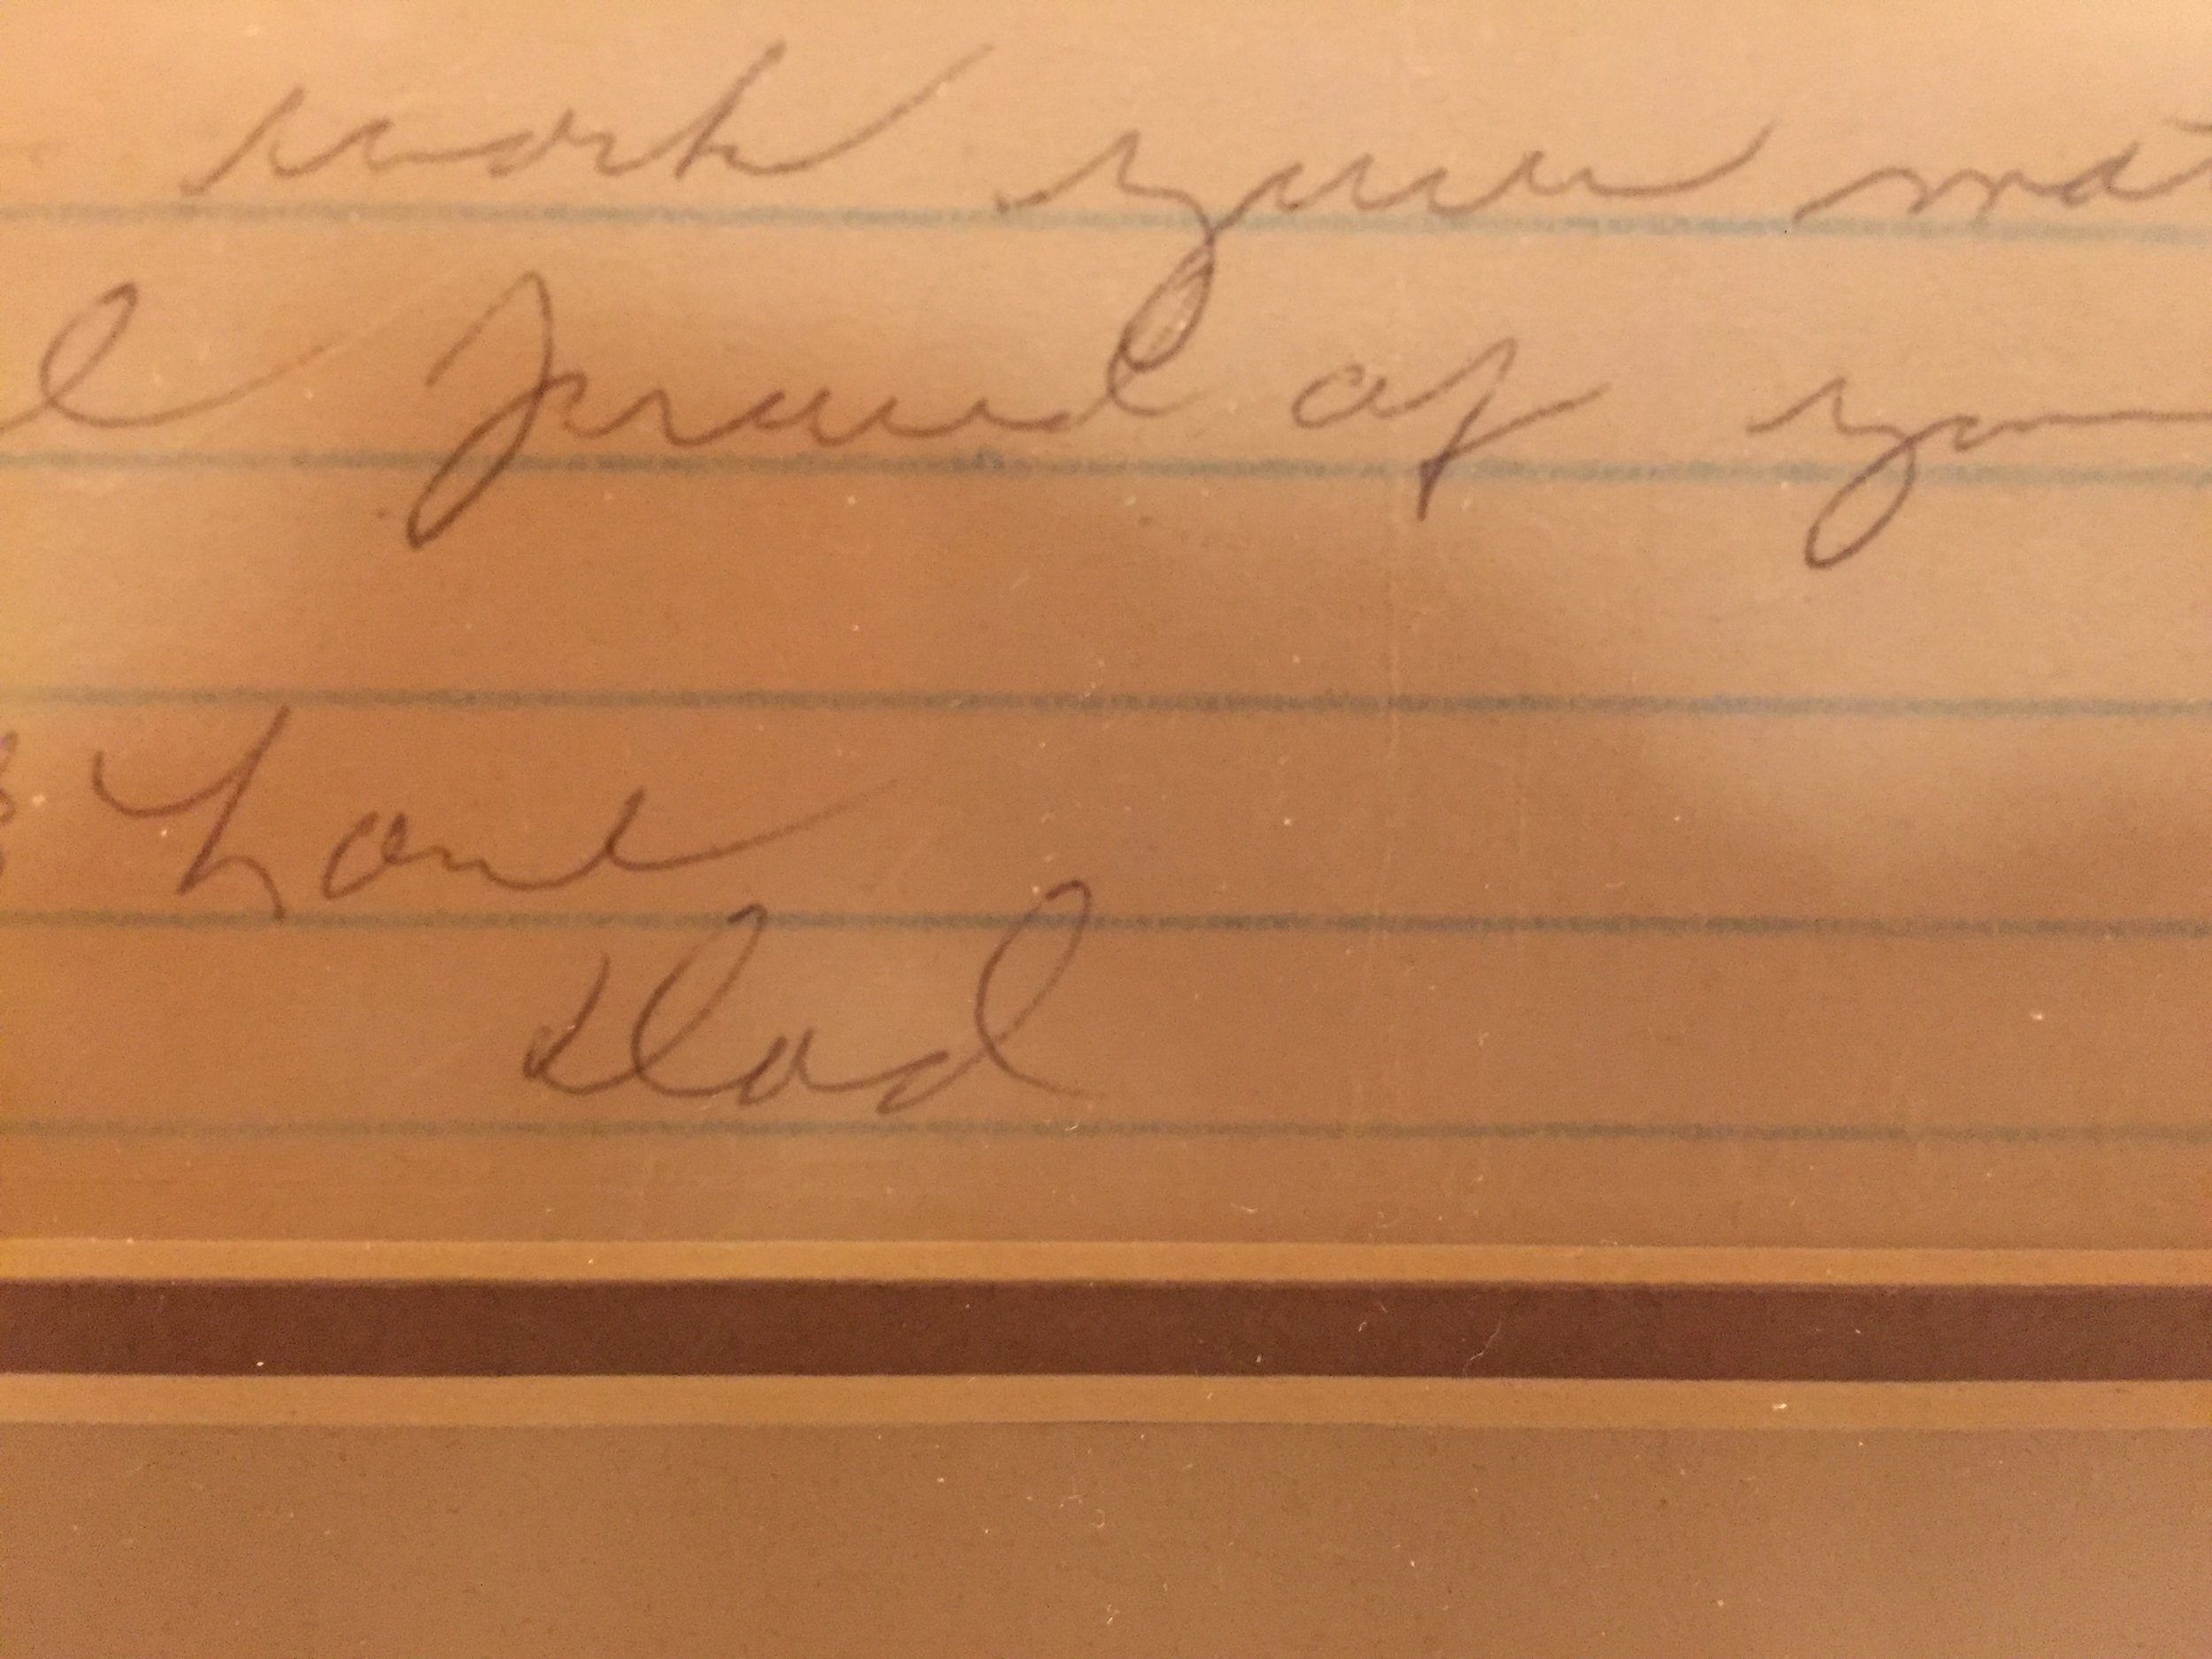 work your
proud of you
Love
Dad